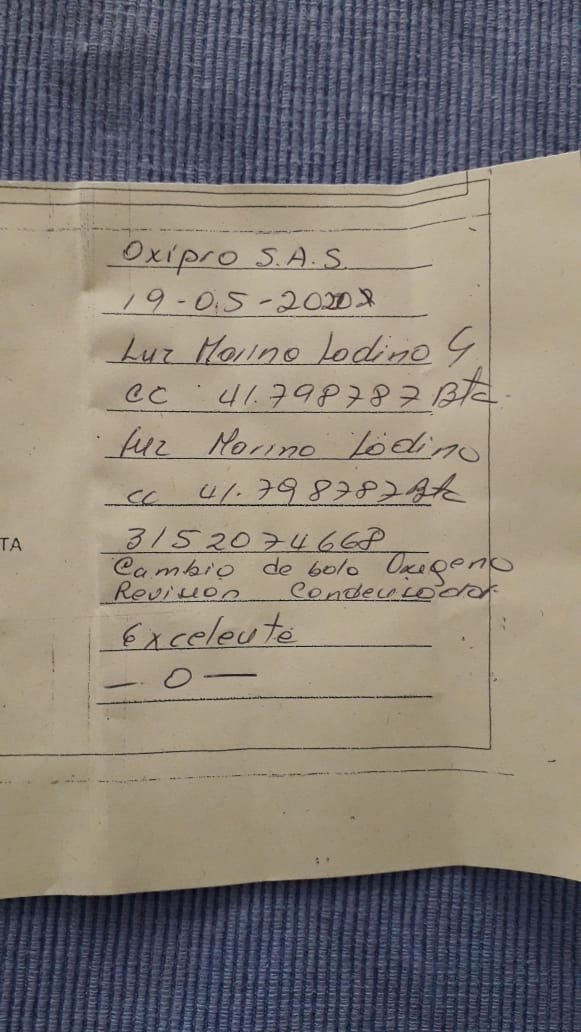 Oxipro S.A.S.
19-05-2020
Luz Marina Ladino G
cc 41.798787 Bta
Luz Marina Ladino
cc 41.798787 Bta
3152074668
TA
Cambio de bala Oxigeno
Revision Condensador
Excelente
— 0 —